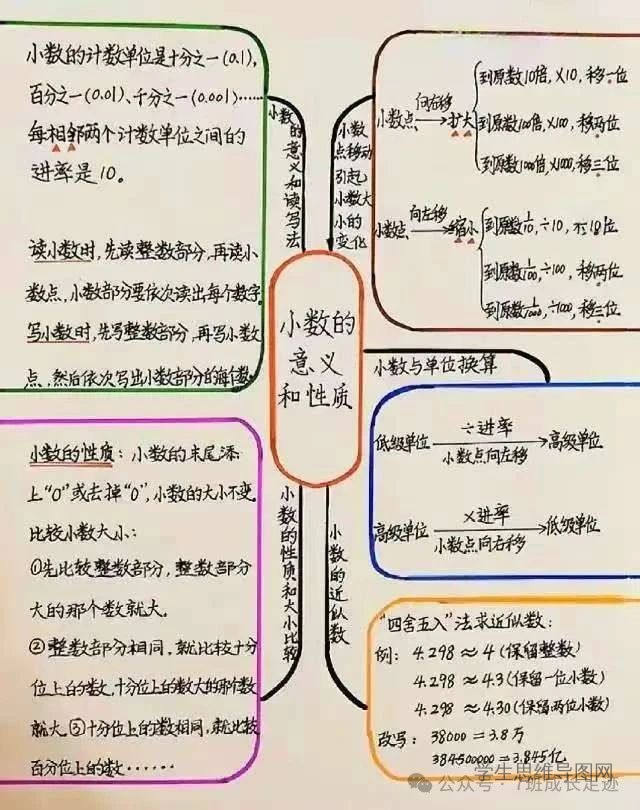 小数的计数单位是十分之一(0.1),
百分之一(0.01)、千分之一(0.001)……
每相邻两个计数单位之间的
进率是10。
读小数时,先读整数部分,再读小
数点,小数部分要依次读出每个数字。
写小数时,先写整数部分,再写小数
点,然后依次写出小数部分的每个数
小数的意义和读写法
小数点移动引起小数大小的变化
小数点 向右移 扩大
到原数10倍,×10,移一位
到原数100倍,×100,移两位
到原数1000倍,×1000,移三位
小数点 向左移 缩小
到原数1/10,÷10,
到原数1/100,÷100,移两位
到原数1/1000,÷1000,移三位
小数的
意义
和性质
小数与单位换算
低级单位 ÷进率 高级单位
小数点向左移
高级单位 ×进率 低级单位
小数点向右移
小数的性质:小数的末尾添
上“0”或去掉“0”,小数的大小不变.
比较小数大小:
①先比较整数部分,整数部分
大的那个数就大.
②整数部分相同,就比较十分
位上的数,十分位上的数大的那个数
就大.③十分位上的数相同,就比较
百分位上的数……
小数的性质和大小比较
小数的近似数
“四舍五入”法求近似数:
例: 4.298≈4(保留整数)
4.298≈4.3(保留一位小数)
4.298≈4.30(保留两位小数)
改写: 38000=3.8万
384500000=3.845亿
学生思维导图网
公众号·7班成长足迹